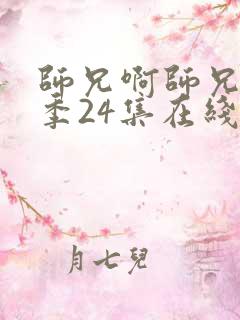 師兄啊師兄
季24集在綫
月七兒